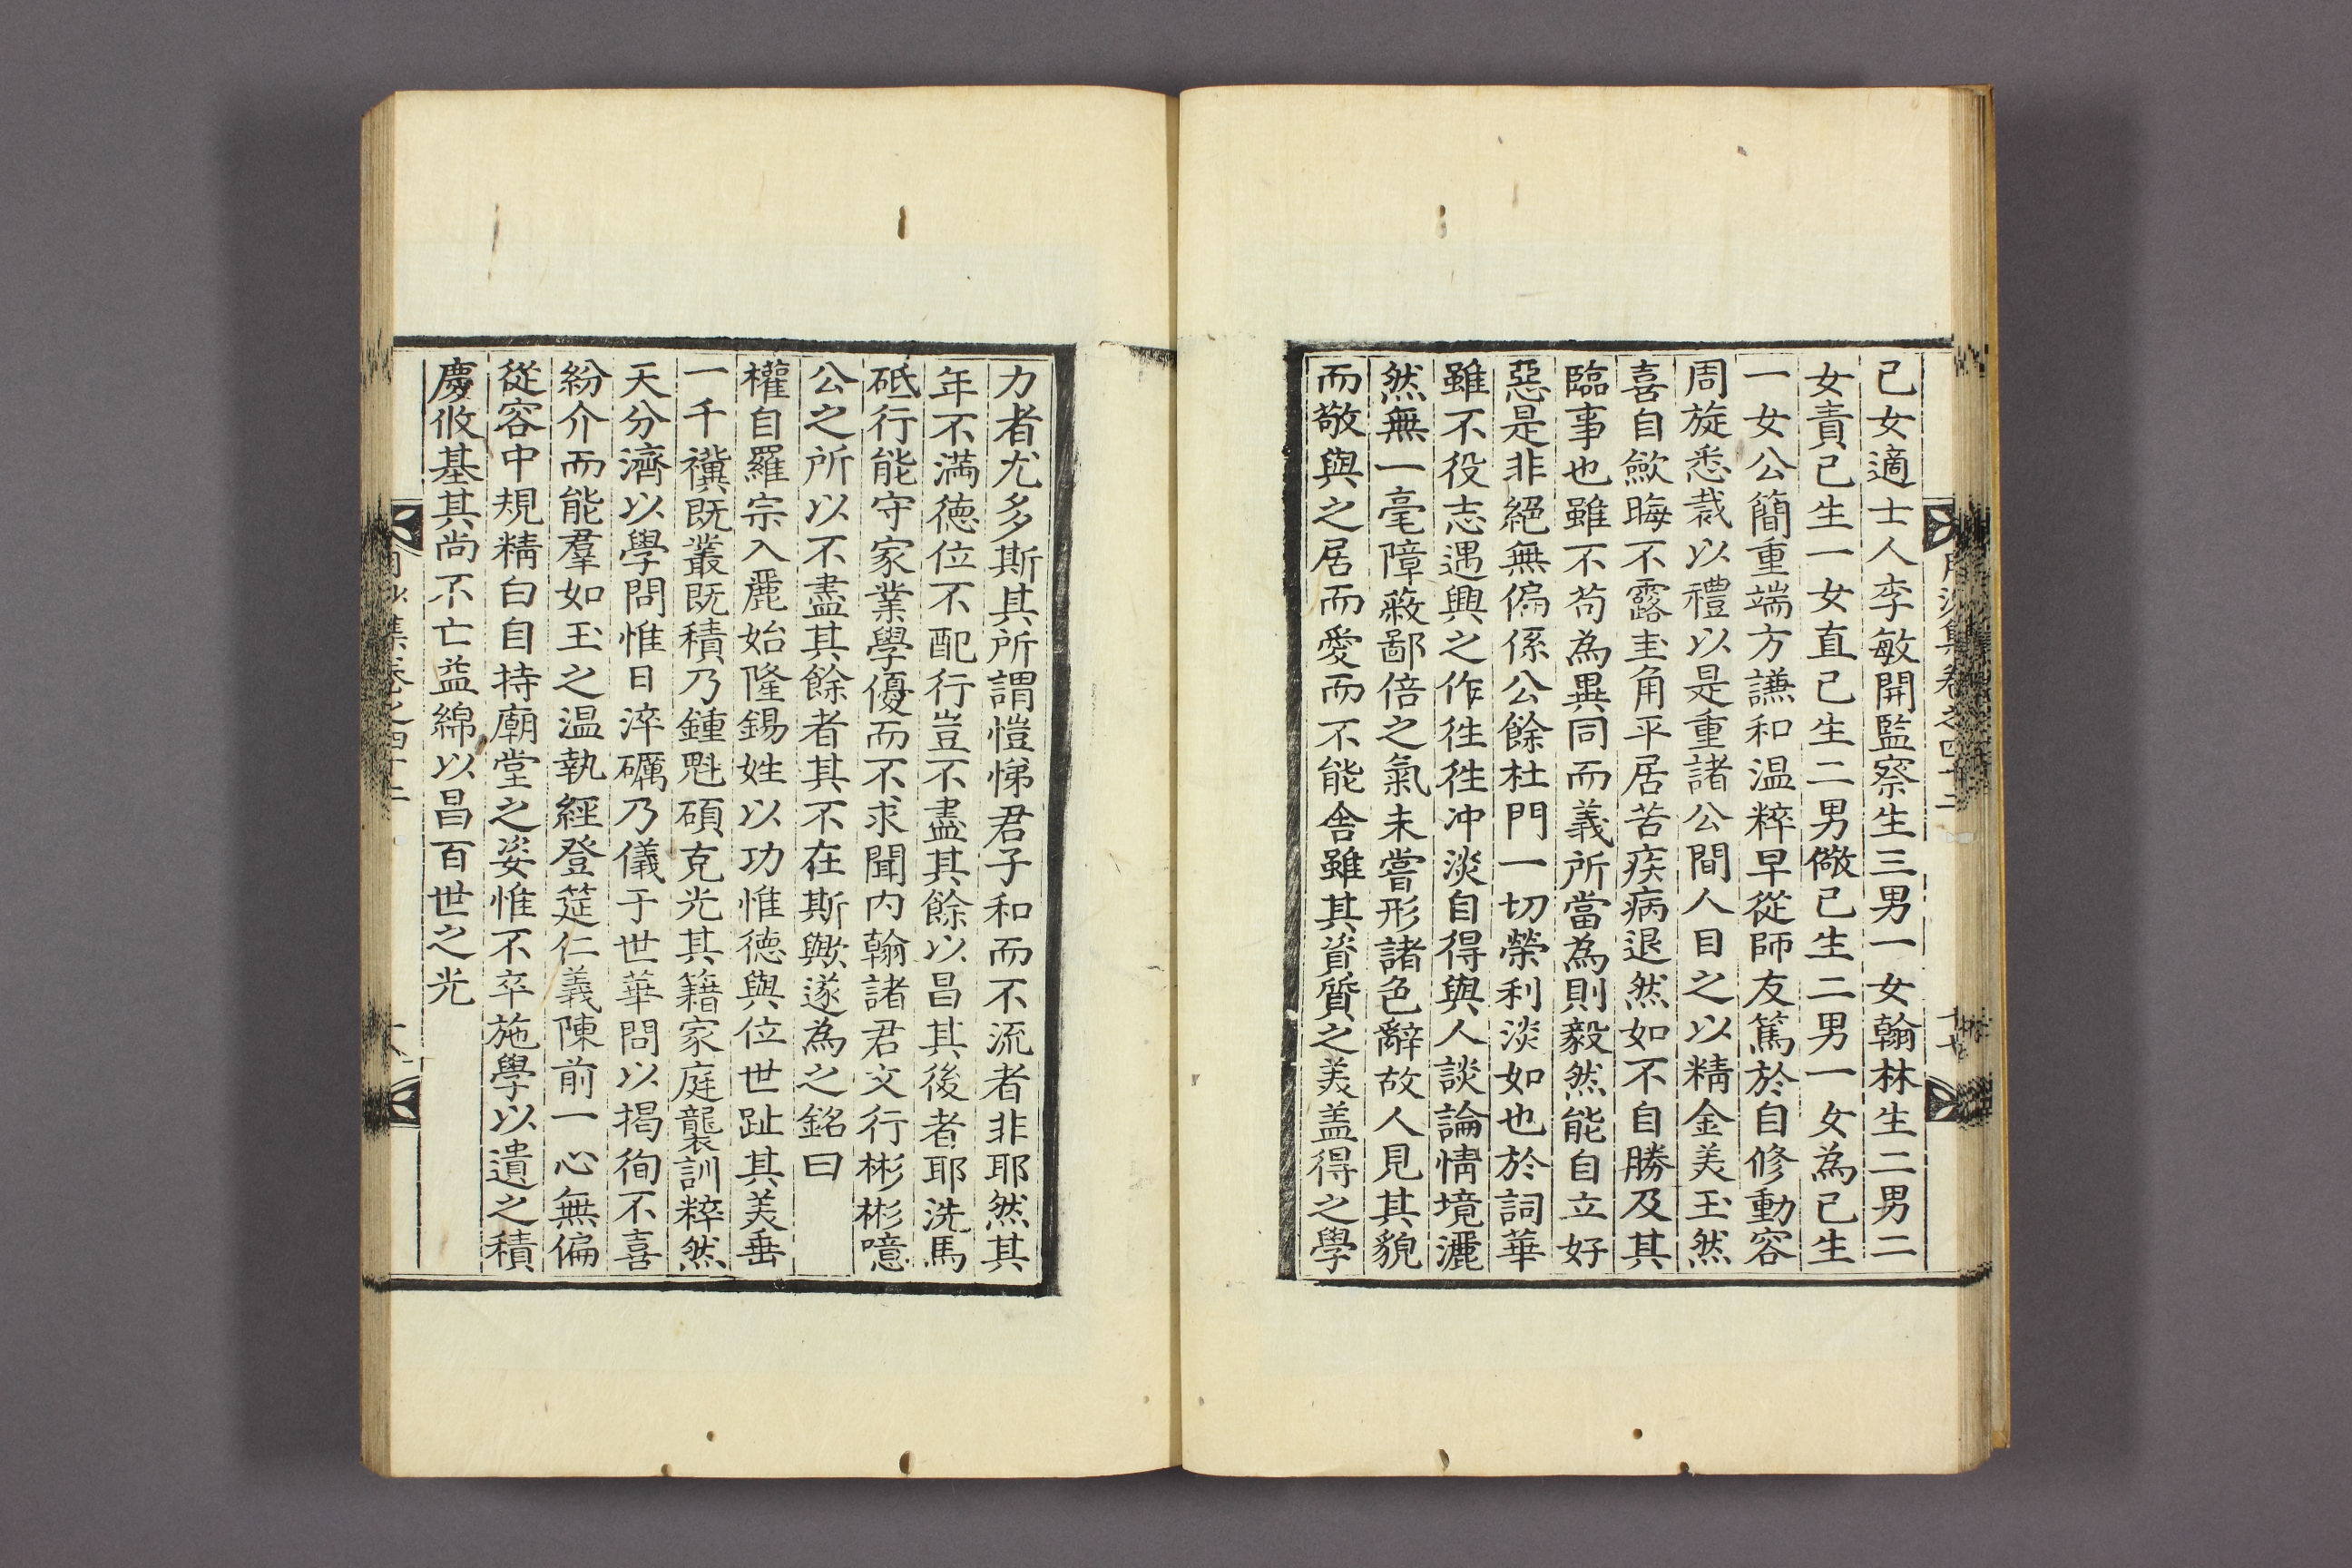 月沙集卷之四十二
己女適士人李敏開監察生三男一女翰林生二男二
女責己生一女直己生二男儆己生二男一女為己生
一女公簡重端方謙和温粹早從師友篤於自修動容
周旋悉裁以禮以是重諸公間人目之以精金美玉然
喜自歛晦不露圭角平居苦疾病退然如不自勝及其
臨事也雖不苟為異同而義所當為則毅然能自立好
惡是非絕無偏係公餘杜門一切榮利淡如也於詞華
雖不役志遇興之作徃徃冲淡自得與人談論情境灑
然無一毫障蔽鄙倍之氣未嘗形諸色辭故人見其貌
而敬與之居而愛而不能舍雖其資質之美盖得之學
力者尤多斯其所謂愷悌君子和而不流者非耶然其
年不滿德位不配行豈不盡其餘以昌其後者耶洗馬
砥行能守家業學優而不求聞内翰諸君文行彬彬噫
公之所以不盡其餘者其不在斯歟遂為之銘曰
權自羅宗入麗始隆錫姓以功惟德與位世趾其美垂
一千禩既叢既積乃鍾魁碩克光其籍家庭襲訓粹然
天分濟以學問惟日淬礪乃儀于世華問以揭徇不喜
紛介而能羣如玉之温執經登筵仁義陳前一心無偏
從容中規精白自持廟堂之姿惟不卒施學以遺之積
慶攸基其尚不亡益綿以昌百世之光
月沙集卷之四十二